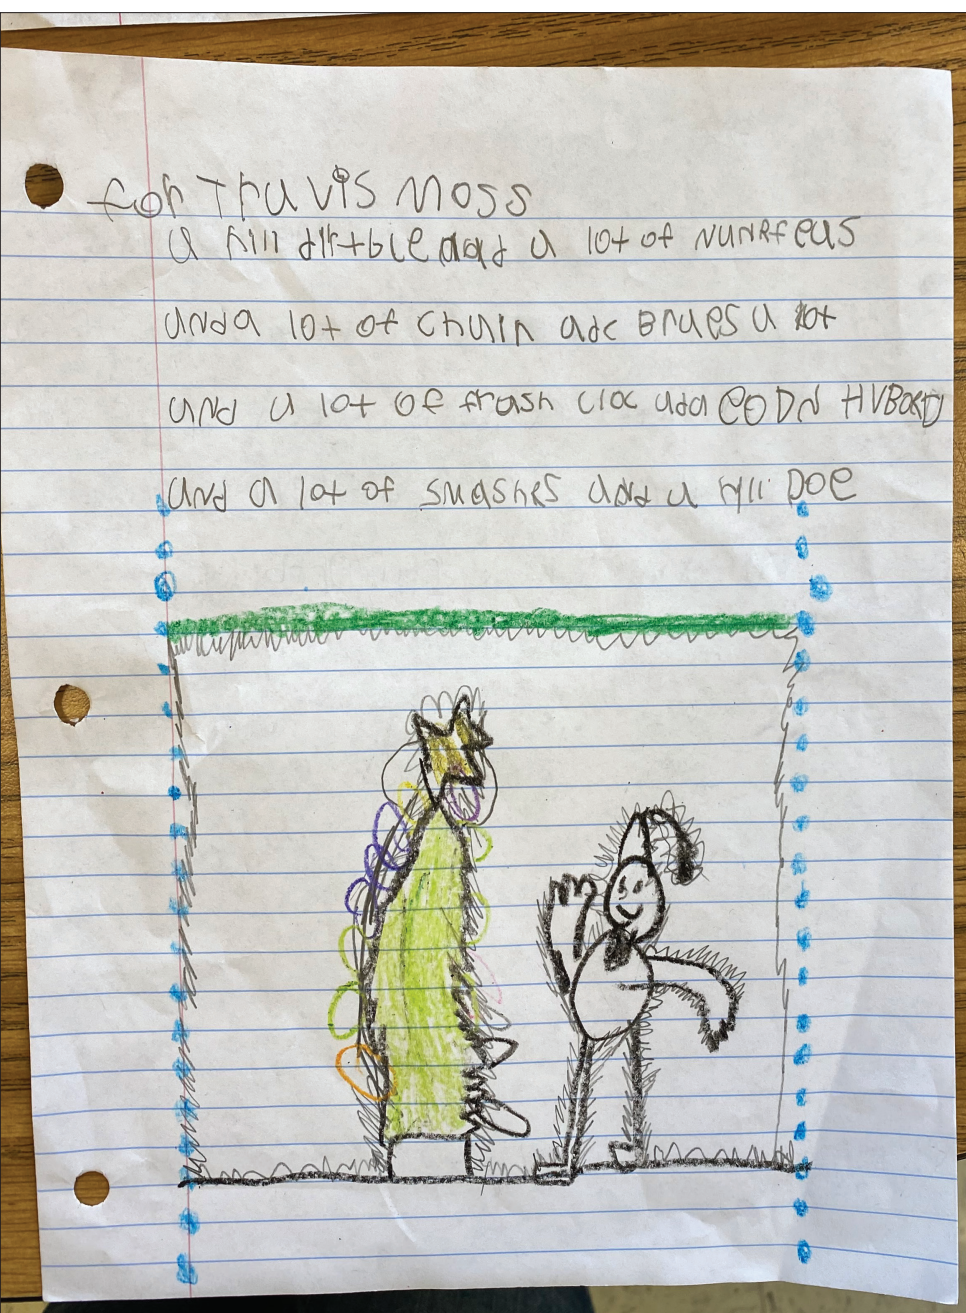 for Travis Moss
a rill dirtbie and a lot of NUNRfeus
anda lot of chuin adc Brues a lot
and a lot of frash cloc ada CODN HVBORD
and a lot of smashes and a rill poe